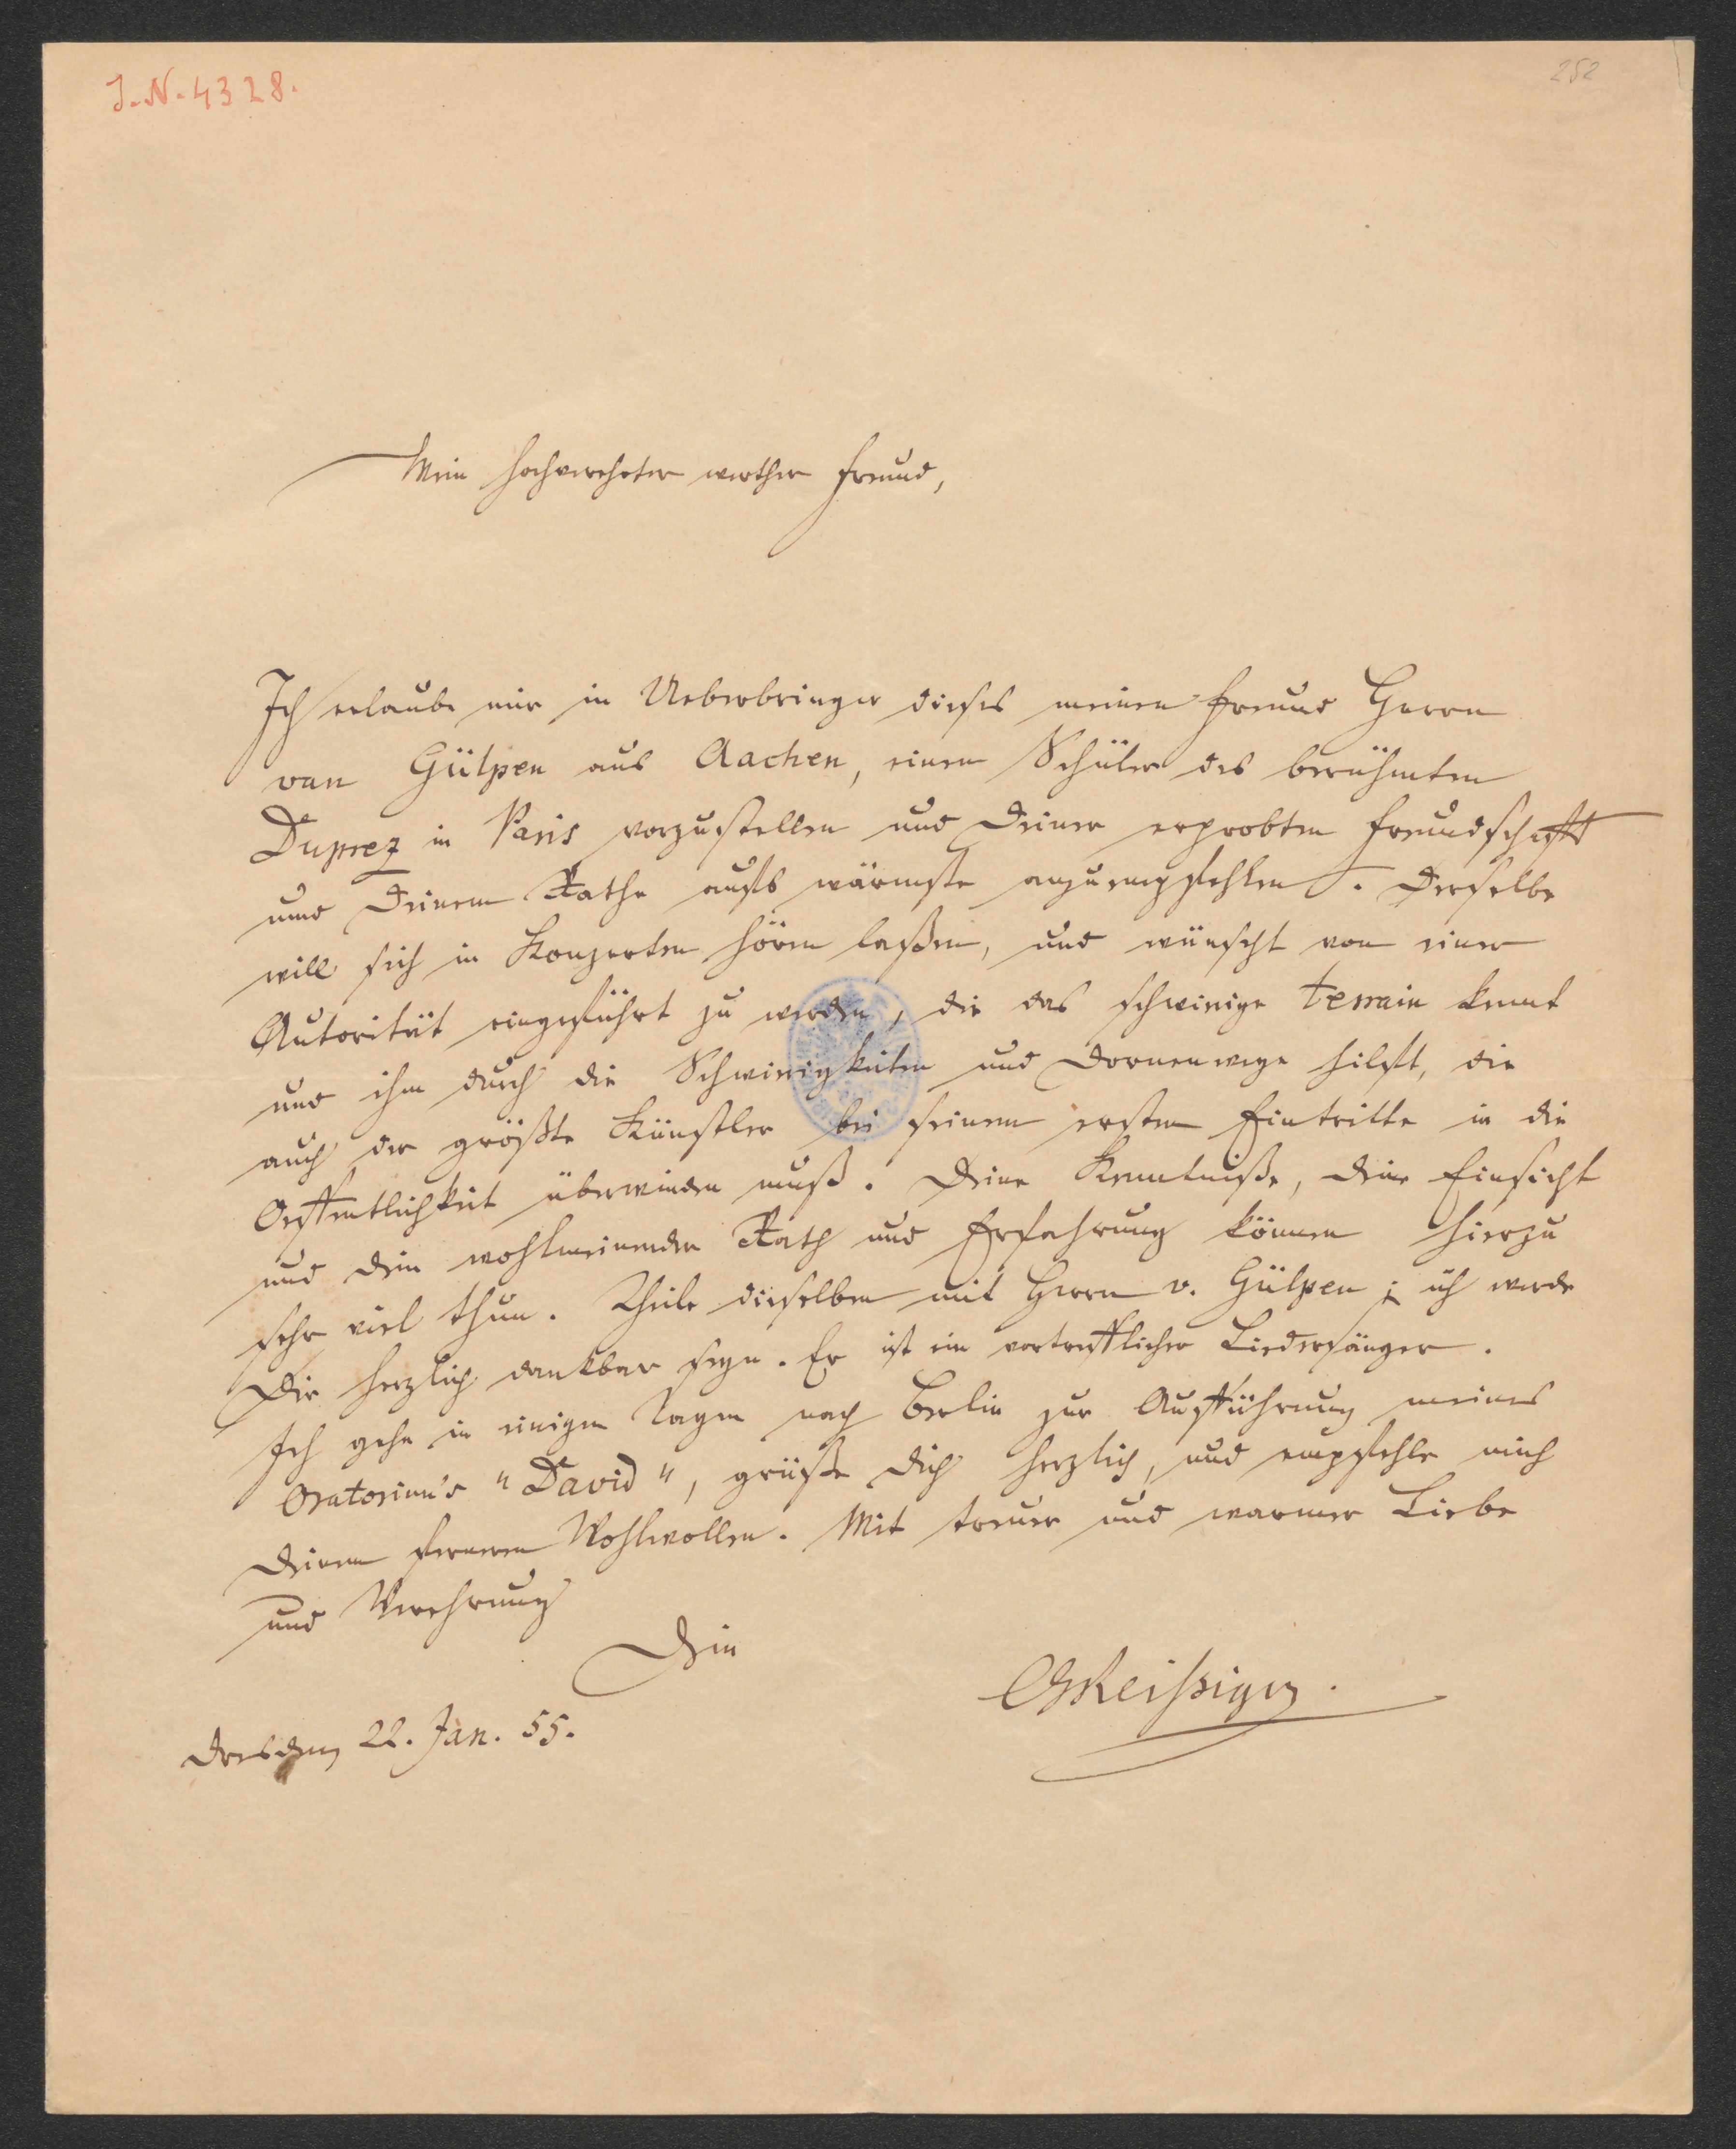 J.N. 4328.
252
Mein hochverehrter werther Freund,
Ich erlaube mir in Ueberbringer dieses meinen Freund Herrn
van Gülpen aus Aachen, einen Schüler des berühmten
Duprez in Paris vorzustellen und Deiner erprobten Freundschafft
und Deinem Rathe aufs wärmste anzuempfehlen. Derselbe
will sich in Konzerten hören laßen, und wünscht von einer
Autorität eingeführt zu werden, die das schwierige terrain kennt
und ihm durch die Schwierigkeiten und Dornenwege hilft, die
auch der größte Künstler bei seinem ersten Eintritte in die
Oeffentlichkeit überwinden muß. Deine Kenntniße, Deine Einsicht
und Dein wohlmeinender Rath und Erfahrung können hierzu
sehr viel thun. Theile dieselben mit Herrn v. Gülpen; ich werde
Dir herzlich dankbar seyn. Er ist ein vortrefflicher Liedersänger.
Ich gehe in einigen Tagen nach Berlin zur Aufführung meines
Oratorium's "David", grüße Dich herzlich, und empfehle mich
Deinem ferneren Wohlwollen. Mit treuer und warmer Liebe
und Verehrung
Dein
CGReißiger.
Dresden, 22. Jan. 55.